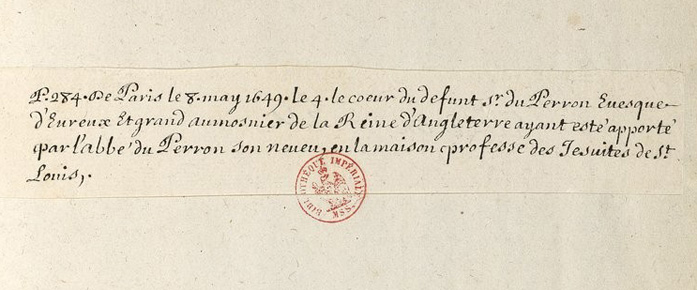 P. 284. De Paris le 8. may 1649. le 4. le coeur du defunt Sr. du Perron Euesque
d'Eureux Et grand aumosnier de la Reine d'Angleterre ayant esté apporté
par l'abbé du Perron son neueu, en la maison professe des Iesuites de St
Louis,.
BIBLIOTHÈQUE IMPÉRIALE MSS.